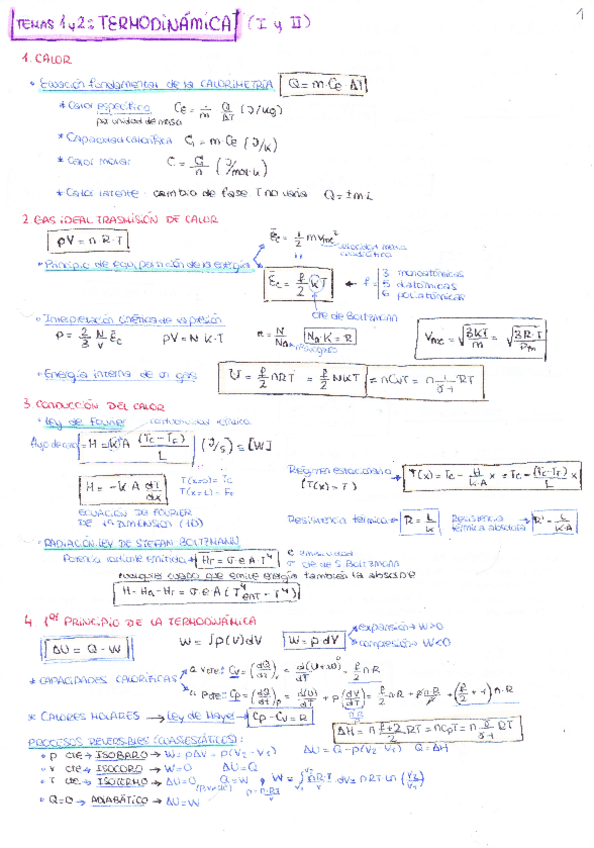 1
TEMAS 1 y 2: TERMODINÁMICA (I y II)
1. CALOR
• Ecuación fundamental de la CALORIMETRÍA Q = m · Ce · ΔT
* Calor específico Ce = 1/m Q/ΔT (J/kg)
por unidad de masa
* Capacidad calorífica C = m · Ce (J/K)
* Calor molar C = C/n (J/mol·K)
* Calor latente cambio de fase T no varía Q = ± m · L
2. GAS IDEAL TRASMISIÓN DE CALOR
pV = n R · T
Ec = 1/2 m vmc²
velocidad media cuadrática
• Principio de equipartición de la energía
Ec = f/2 kT ← f = 3 monoatómicas
5 diatómicas
6 poliatómicas
cte de BOLTZMANN
• Interpretación cinética de la presión
p = 2/3 N/V Ec pV = N K · T n = N/NA NA K = R Vmc = √3KT/m = √3RT/Pm
• Energía interna de un gas U = f/2 nRT = f/2 NKT = nCvT = n 1/γ-1 RT
3. CONDUCCIÓN DEL CALOR
• Ley de FOURIER conductividad térmica
Flujo de calor = H = k A (Tc - Tf)/L (J/s) = [W]
H = -k A dT/dx T(x=0) = Tc
T(x=L) = Tf
Régimen estacionario
(T(x) = T)
T(x) = Tc - H/k·A x = Tc - (Tc-Tf)/L x
ECUACIÓN DE FOURIER
DE 1ª DIMENSIÓN (1D)
Resistencia térmica R = L/k Resistencia térmica absoluta R' = L/k·A
• RADIACIÓN. LEY DE STEFAN BOLTZMANN
Potencia radiante emitida Hr = σ e A · T⁴ e emisividad
σ cte de S. BOLTZMANN
cualquier cuerpo que emite energía también la absorbe
H = Ha - Hr = σ e A (T⁴ENT - T⁴)
4. 1er PRINCIPIO DE LA TERMODINÁMICA
ΔU = Q - W W = ∫p(V)dV W = p dV expansión → W>0
compresión → W<0
* CAPACIDADES CALORÍFICAS
a V cte: Cv = (dQ/dT)v = d(U+W)/dT = f/2 n R
a p cte: Cp = (dQ/dT)p = d(U)/dT + p(dV/dT) = f/2 n·R + n·R = (f/2 + 1) n·R
* CALORES MOLARES → Ley de Mayer Cp - Cv = R
ΔH = n f+2/2 RT = nCpT = n γ/γ-1 RT
PROCESOS REVERSIBLES (CUASIESTÁTICOS):
• p cte → ISOBARO → W = pΔV = p(V2 - V1) ΔU = Q - p(V2 - V1) Q = ΔH
• V cte → ISOCORO → W = 0 ΔU = Q
• T cte → ISOTERMO → ΔU = 0 Q = W W = ∫ nRT/V dV = nRT ln (V2/V1)
• Q = 0 → ADIABÁTICO → ΔU = W